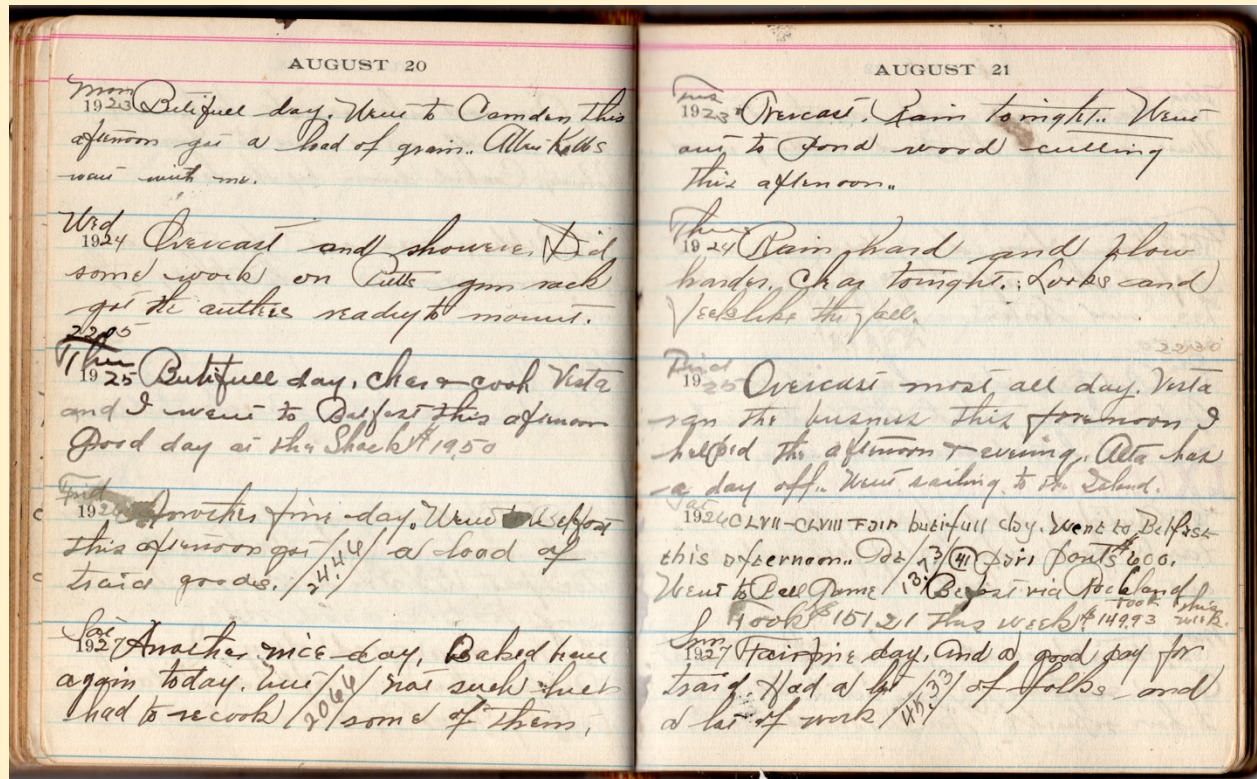 AUGUST 20
Mon
1923 Butifull day. Went to Camden this
afternoon got a load of grain.. Allie
went with me.
Wed
1924 Overcast and showers. Did
some work on Pitts gun rack
got the antlers ready to mount.
22.05
Thu
1925 Butifull day. Chas & cook Vesta
and I went to Belfast this afternoon
Good day at the Shack $19.50
Frid
1926 Another fine day. Went to Belfast
this afternoon got a load of
traid goods. /24.44/
Sat
1927 Another nice day. Baked have
again today. but not such
had to recook /20.66/ some of them.
AUGUST 21
Tues
1923 Overcast. Rain tonight.. Went
out to Pond wood cutting
this afternoon..
Thurs
1924 Rain hard and blow
harder. Clear tonight. Looks and
feels like the fall.
22.30
Frid
1925 Overcast most all day. Vesta
ran the busness this forenoon I
helped the afternoon & evening. Alta has
a day off.. Went sailing to the Island.
Sat
1926 CLVII-CLVIII Fair butifull day. Went to Belfast
this afternoon.. 41 pair pants $6.00.
Went to Ball Game Belfast via Rockland
Took $151.21 this week took $149.93 this week.
Sun
1927 Fair fine day. And a good day for
traid. Had a lot /45.33/ of folks and
a lot of work